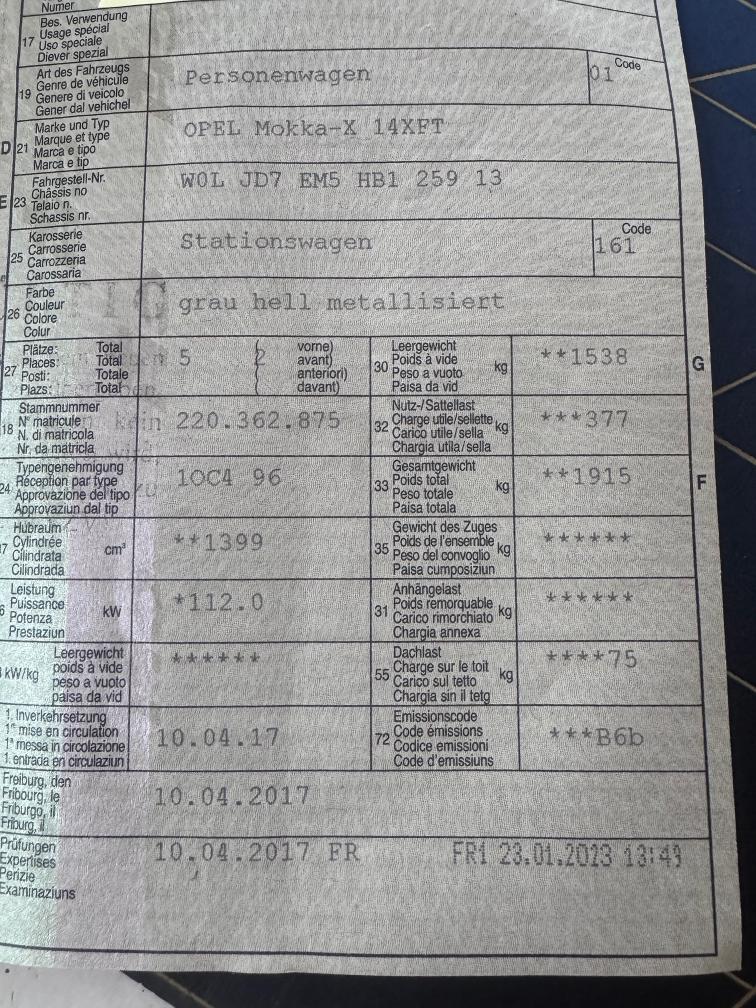 Numer
17 Bes. Verwendung
Usage spécial
Uso speciale
Diever spezial
19 Art des Fahrzeugs
Genre de véhicule
Genere di veicolo
Gener dal vehichel
Personenwagen
01 Code
D 21 Marke und Typ
Marque et type
Marca e tipo
Marca e tip
OPEL Mokka-X 14XFT
E 23 Fahrgestell-Nr.
Châssis no
Telaio n.
Schassis nr.
W0L JD7 EM5 HB1 259 13
25 Karosserie
Carrosserie
Carrozzeria
Carossaria
Stationswagen
Code
161
26 Farbe
Couleur
Colore
Colur
grau hell metallisiert
27 Plätze: Total
Places: Total
Posti: Totale
Plazs: Total
5 ( 2 vorne)
avant)
anteriori)
davant)
30 Leergewicht
Poids à vide
Peso a vuoto
Paisa da vid
kg
**1538
G
18 Stammnummer
N° matricule
N. di matricola
Nr. da matricla
220.362.875
32 Nutz-/Sattellast
Charge utile/sellette
Carico utile/sella
Chargia utila/sella
kg
***377
24 Typengenehmigung
Réception par type
Approvazione del tipo
Approvaziun dal tip
1OC4 96
33 Gesamtgewicht
Poids total
Peso totale
Paisa totala
kg
**1915
F
7 Hubraum
Cylindrée
Cilindrata
Cilindrada
cm³
**1399
35 Gewicht des Zuges
Poids de l'ensemble
Peso del convoglio
Paisa cumposiziun
kg
******
6 Leistung
Puissance
Potenza
Prestaziun
kW
*112.0
31 Anhängelast
Poids remorquable
Carico rimorchiato
Chargia annexa
kg
******
kW/kg
Leergewicht
poids à vide
peso a vuoto
paisa da vid
******
55 Dachlast
Charge sur le toit
Carico sul tetto
Chargia sin il tetg
kg
****75
1. Inverkehrsetzung
1re mise en circulation
1a messa in circolazione
1. entrada en circulaziun
10.04.17
72 Emissionscode
Code émissions
Codice emissioni
Code d'emissiuns
***B6b
Freiburg, den
Fribourg, le
Friburgo, il
Friburg, il
10.04.2017
Prüfungen
Expertises
Perizie
Examinaziuns
10.04.2017 FR
FR1 23.01.2023 13:49